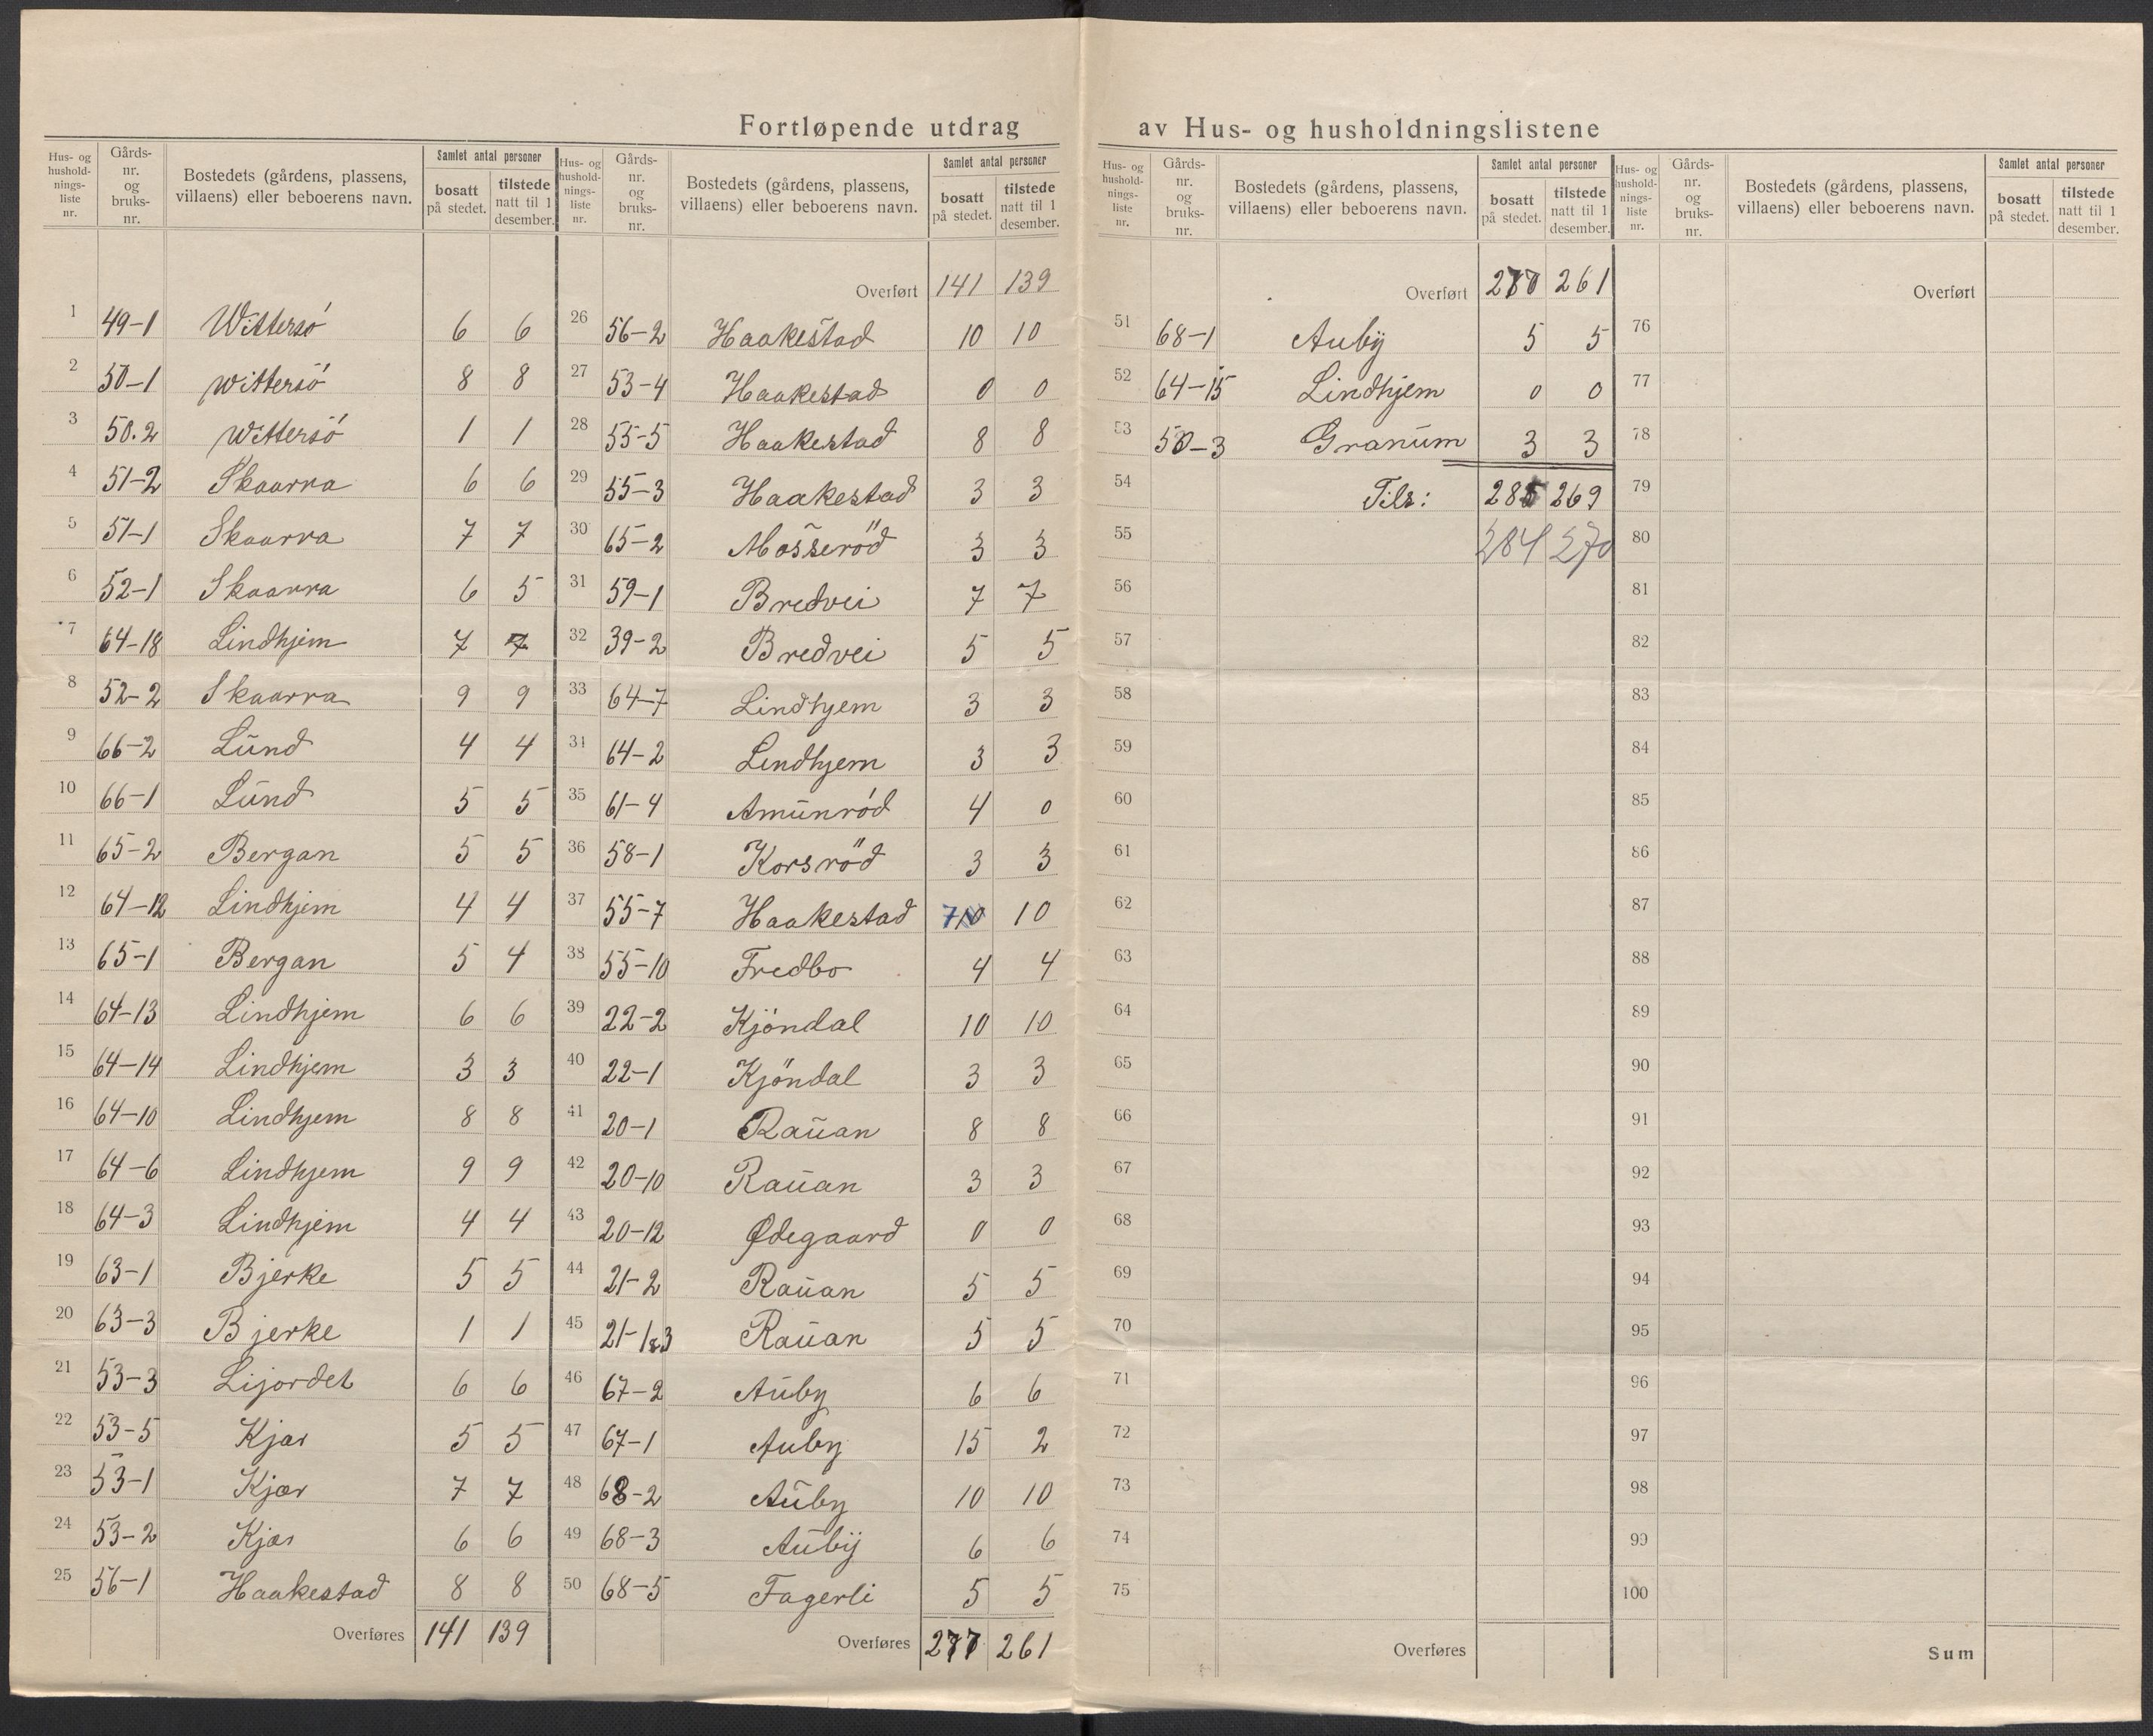 Fortløpende utdrag av Hus- og husholdningslistene
Hus- og hushold-nings-liste nr. | Gårds-nr. og bruks-nr. | Bostedets (gårdens, plassens, villaens) eller beboerens navn. | Samlet antal personer | bosatt på stedet. | tilstede natt til 1 desember.
1 49-1 Wittersö 6 6
2 50-1 Wittersö 8 8
3 50.2 Wittersö 1 1
4 51-2 Skaarra 6 6
5 51-1 Skaarra 7 7
6 52-1 Skaarra 6 5
7 64-18 Lindhjem 7 7
8 52-2 Skaarra 9 9
9 66-2 Lund 4 4
10 66-1 Lund 5 5
11 65-2 Bergan 5 5
12 64-12 Lindhjem 4 4
13 65-1 Bergan 5 4
14 64-13 Lindhjem 6 6
15 64-14 Lindhjem 3 3
16 64-10 Lindhjem 8 8
17 64-6 Lindhjem 9 9
18 64-3 Lindhjem 4 4
19 63-1 Bjerke 5 5
20 63-3 Bjerke 1 1
21 53-3 Lijordet 6 6
22 53-5 Kjær 5 5
23 53-1 Kjær 7 7
24 53-2 Kjær 6 6
25 56-1 Haakestad 8 8
Overføres 141 139
Hus- og hushold-nings-liste nr. | Gårds-nr. og bruks-nr. | Bostedets (gårdens, plassens, villaens) eller beboerens navn. | Samlet antal personer | bosatt på stedet. | tilstede natt til 1 desember.
Overført 141 139
26 56-2 Haakestad 10 10
27 53-4 Haakestad 0 0
28 55-5 Haakestad 8 8
29 55-3 Haakestad 3 3
30 65-2 Mosseröd 3 3
31 59-1 Bredvei 7 7
32 39-2 Bredvei 5 5
33 64-7 Lindhjem 3 3
34 64-2 Lindhjem 3 3
35 61-4 Amunröd 4 0
36 58-1 Korsröd 3 3
37 55-7 Haakestad 7 10 10
38 55-10 Fredbo 4 4
39 22-2 Kjöndal 10 10
40 22-1 Kjöndal 3 3
41 20-1 Rauan 8 8
42 20-10 Rauan 3 3
43 20-12 Ødegaard 0 0
44 21-2 Rauan 5 5
45 21-1&3 Rauan 5 5
46 67-2 Auby 6 6
47 67-1 Auby 15 2
48 68-2 Auby 10 10
49 68-3 Auby 6 6
50 68-5 Fagerli 5 5
Overføres 277 261
Hus- og hushold-nings-liste nr. | Gårds-nr. og bruks-nr. | Bostedets (gårdens, plassens, villaens) eller beboerens navn. | Samlet antal personer | bosatt på stedet. | tilstede natt til 1 desember.
Overført 277 261
51 68-1 Auby 5 5
52 64-15 Lindhjem 0 0
53 50-3 Granum 3 3
54 Tils: 285 269
55 284 270
56
57
58
59
60
61
62
63
64
65
66
67
68
69
70
71
72
73
74
75
Overføres
Hus- og hushold-nings-liste nr. | Gårds-nr. og bruks-nr. | Bostedets (gårdens, plassens, villaens) eller beboerens navn. | Samlet antal personer | bosatt på stedet. | tilstede natt til 1 desember.
Overført
76
77
78
79
80
81
82
83
84
85
86
87
88
89
90
91
92
93
94
95
96
97
98
99
100
Sum